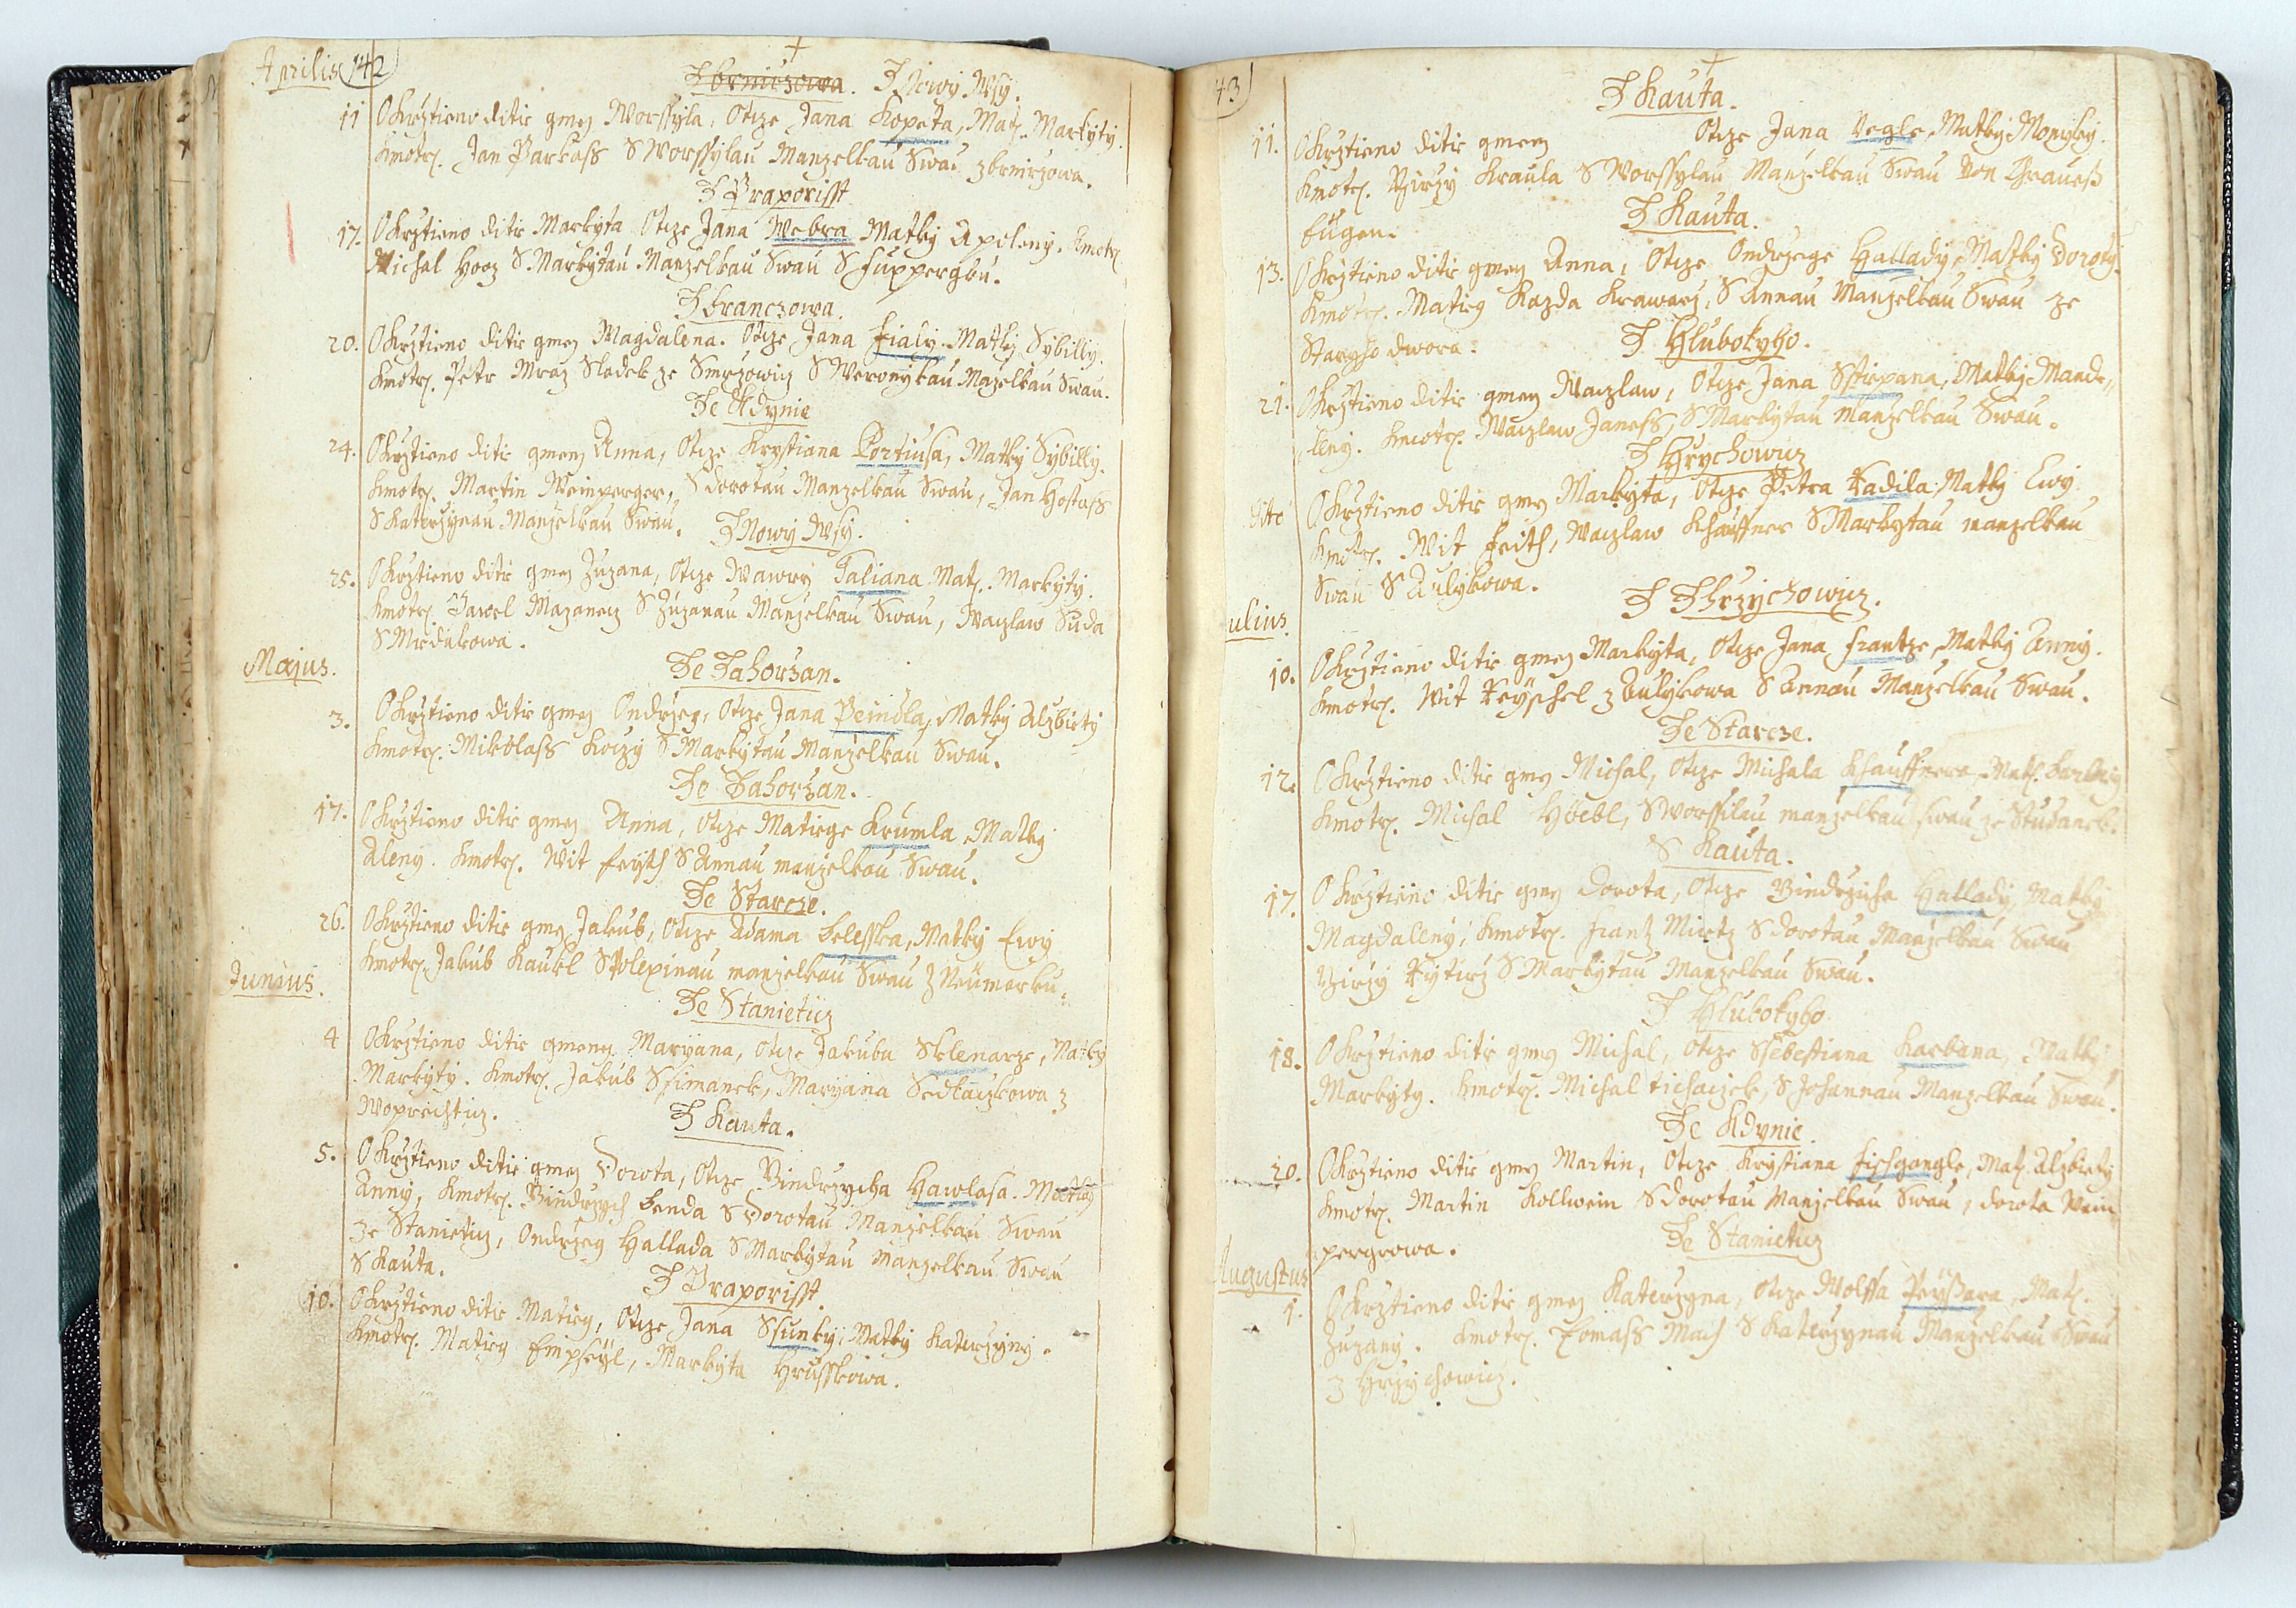 Aprilis 142
Z Brniczowa. Z Nowy Wsy.
11 Okrztieno ditie gmeng Worssyla, Otcze Jana Kopeta, Matky Markyty.
Kmotrz. Jan Parkoss S Worssylau Manzelkau Swau z brnirzowa.
Z Praporisst
17. Okrztieno ditie Markyta Otcze Jana Webra Matky Apoleny. Kmotrz
Michal Hooz S Markytau Manzelkau Swau S Fuxpergku.
Z Branczowa.
20. Okrztieno ditie gmeng Magdalena. Otcze Jana Fialy. Matky Sybilly.
Kmotrz. Petr Mraz Sladek ze Smrzowicz S Weronykau Mazelkau Swau.
Ze Kdynie
24. Okrztieno ditie gmeng Anna, Otcze Krystiana Portiusa, Matky Sybilly.
Kmotrz. Martin Weinperger, S dorotau Manzelkau Swau, Jan Hostass
S Katerzynau Manzelkau Swau. Z Nowy Wsy.
25. Okrztieno ditie gmeng Zuzana, Otcze Wawry Taliana Matky. Markyty.
Kmotrz. Pawel Mazanecz S Zuzanau Manzelkau Swau, Waczlaw Suda
S Mrdakowa.
Majus.
Ze Zahorzan.
3. Okrztieno ditie gmeng Ondrzeg, Otcze Jana Peindla, Matky Alzbiety
Kmotrz. Mikolass Koczy S Markytau Manzelkau Swau.
Ze Zahorzan.
17. Okrztieno ditie gmeng Anna, Otcze Matiege Krumla, Matky
Aleny. Kmotrz. Wit Feyth S Annau manzelkau Swau.
Ze Starcze.
26. Okrztieno ditie gmeng Jakub, Otcze Adama beleska, Matky Ewy
Kmotrz. Jakub Kaukl S Polexinau manzelkau Swau Z Neumarku.
Junius.
Ze Stanieticz
4 Okrztieno ditie gmeng Maryana, Otcze Jakuba Sklenarze, Matky
Markyty. Kmotrz. Jakub Ssimanek, Maryana Sedlaczkowa z
Woprechticz.
Z Kauta.
5. Okrztieno ditie gmeng Dorota, Otcze Bindrzycha Hawlasa. Matky
Anny, Kmotrz. Bindrzych benda S Dorotau Manzelkau Swau
ze Stanieticz, Ondrzeg Hallada S Markytau Manzelkau Swau
S Kauta.
Z Praporisst.
10. Okrztieno ditie Matieg, Otcze Jana Ssunky, Matky Katerzyny.
Kmotrz. Matieg Empseyl, Markyta Hrusskowa.
43
Z Kauta.
11. Okrztieno ditie gmeng Otcze Jana Vegle, Matky Monyky.
Kmotrz. Girzy Kraula S Worssylau Manzelkau Swau Von Graueß
Eugen.
Z Kauta.
13. Okrztieno ditie gmeng Anna, Otcze Ondrzege Hallady, Matky Doroty.
Kmotrz. Matieg Kazda Krawarz, S Annau Manzelkau Swau ze
Staryho dwora.
Z Hlubokyho.
21. Okrztieno ditie gmeng Waczlaw, Otcze Jana Sstiepana, Matky Mande,,
leny. Kmotrz. Waczlaw Janess, S Markytau manzelkau Swau.
Z Hrychowicz
Okrztieno ditie gmeng Markyta, Otcze Petra Kadila, Matky Ewy.
Kmotrz. Wit Feith, Waczlaw Khauffner S Markytau manzelkau
Swau S Aulykowa.
ulius.
Z Zhrzychowicz.
10. Okrztieno ditie gmeng Markyta, Otcze Jana Frantze, Matky Anny.
Kmotrz. Wit Keyschel z Aulykowa S Annau Manzelkau Swau.
Ze Starcze.
12. Okrztieno ditie gmeng Michal, Otcze Michala Khauffnera, Matky. barbory
Kmotrz. Michal Höebl, S Worssilau manzelkau swau ze Studanek.
S Kauta.
17. Okrztieno ditie gmeng Dorota, Otcze Bindrzicha Hallady, Matky
Magdaleny, Kmotrz. Frantz Mietz S dorotau Manzelkau Swau
Girzy Rytirz S Markytau Manzelkau Swau.
Z Hlubokyho.
18. Okrztieno ditie gmeng Michal, Otcze Ssebestiana Karbana, Matky
Markyty. Kmotrz. Michal tichaczek, S Johannau Manzelkau Swau.
Ze Kdynie.
20. Okrztieno ditie gmeng Martin, Otcze Krystiana Fischgangle, Matky. Alzbiety
Kmotrz. Martin Kollwein S dorotau Manzelkau Swau, dorota Wein
pergrowa.
Augustus
Ze Stanieticz
1. Okrztieno ditie gmeng Katerzyna, Otcze Wolffa Peyßara, Matky.
Zuzany. Kmotrz. Tomass Mach S Katerzynau Manzelkau Swau
z Hrzychowicz.